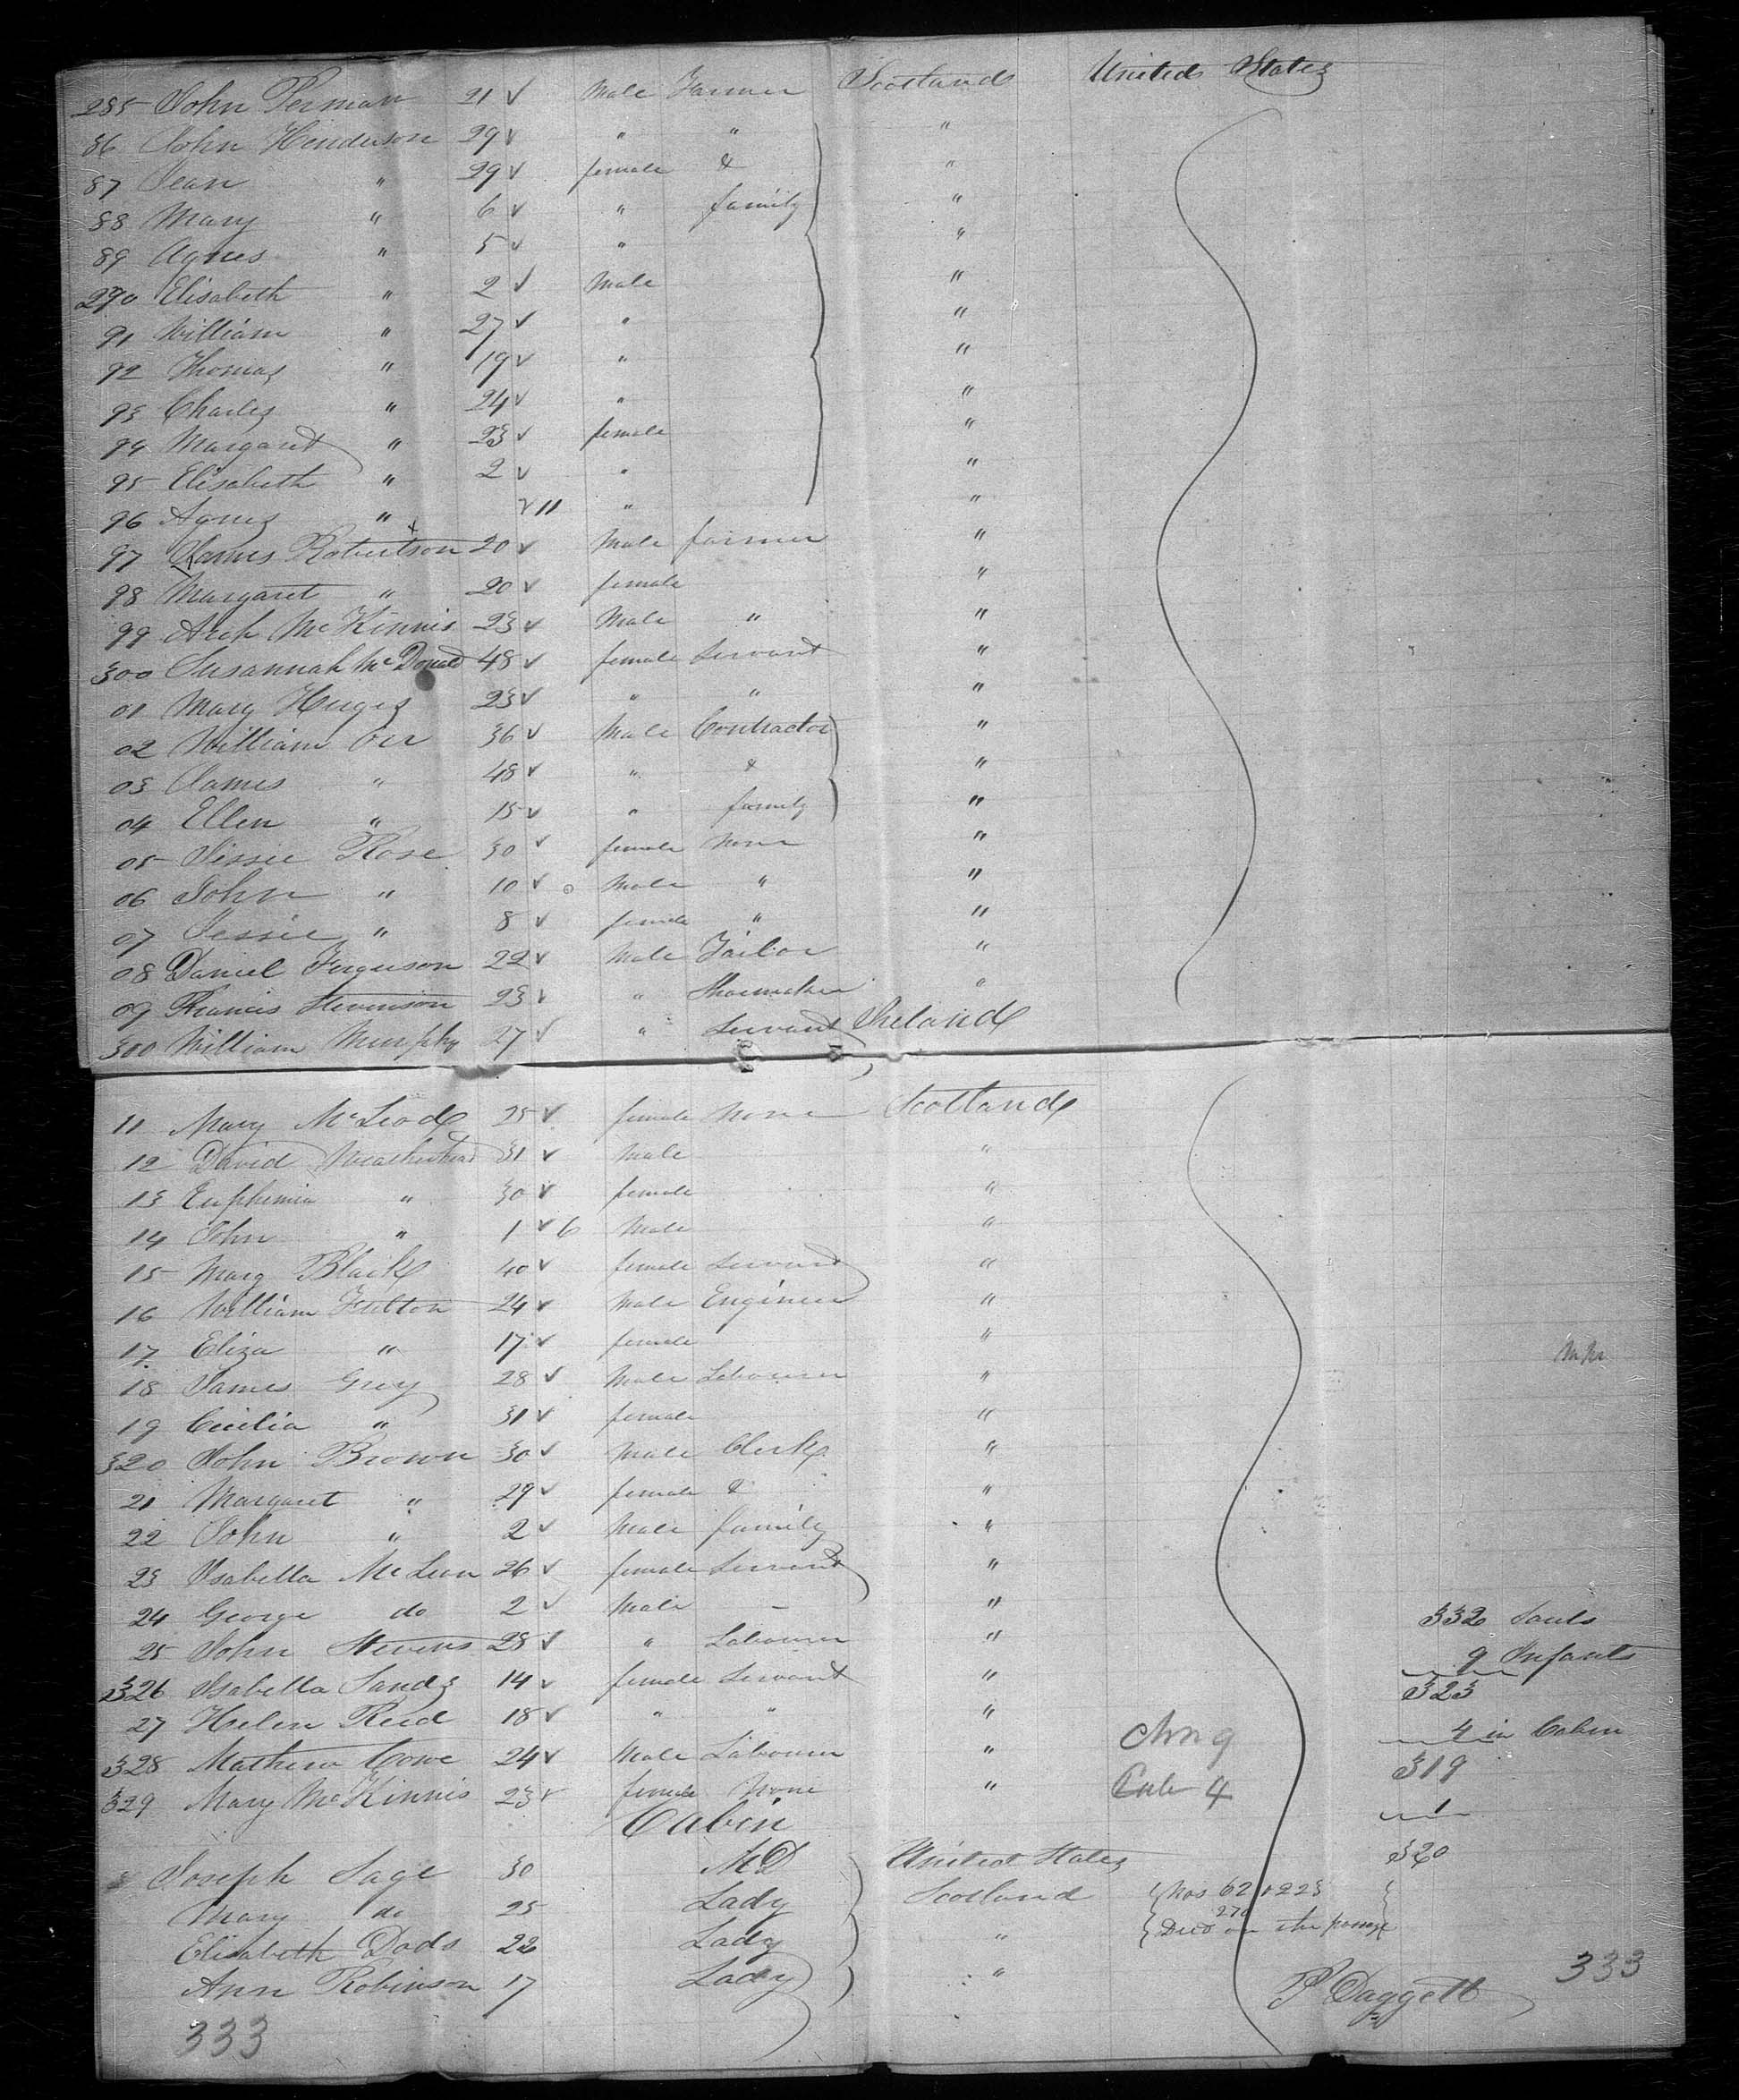 285 John Perman 21 ✓ Male Farmer Scotland United States
86 John Henderson 29 ✓ " " "
87 Jean " 29 ✓ female & "
88 Mary " 6 ✓ " family "
89 Agnes " 5 ✓ " "
290 Elisabeth " 2 ✓ Male "
91 William " 27 ✓ " "
92 Thomas " 19 ✓ " "
93 Charles " 24 ✓ " "
94 Margaret " 23 ✓ female "
95 Elisabeth " 2 ✓ " "
96 Agnes " ✓ 11 " "
97 James Robertson 20 ✓ Male farmer "
98 Margaret " 20 ✓ female "
99 Arch McKinnis 23 ✓ Male " "
300 Susannah McDonald 48 ✓ female Servant "
01 Mary Huges 23 ✓ " " "
02 William Orr 36 ✓ Male Contractor "
03 James " 48 ✓ " & "
04 Ellen " 15 ✓ " family "
05 Jessie Rose 30 ✓ female None "
06 John " 10 ✓ Male " "
07 Jessie " 8 ✓ female " "
08 Daniel Ferguson 22 ✓ Male Tailor "
09 Francis Stevenson 23 ✓ " Shoemaker "
300 William Murphy 27 ✓ " Servant Ireland
11 Mary McLeod 25 ✓ female None Scotland
12 David Weatherhead 31 ✓ Male "
13 Euphemia " 30 ✓ female "
14 John " 1 ✓ 6 Male "
15 Mary Black 40 ✓ female Servant "
16 William Fulton 24 ✓ Male Engineer "
17 Eliza " 17 ✓ female "
18 James Grey 28 ✓ Male Labourer "
19 Cecilia " 31 ✓ female "
320 John Brown 30 ✓ Male Clerk "
21 Margaret " 29 ✓ female & "
22 John " 2 ✓ Male family "
23 Isabella McLean 26 ✓ female Servant "
24 George do 2 ✓ Male - " 332 Souls
25 John Stevens 28 ✓ " Labourer " 9 Infants
326 Isabella Sands 14 ✓ female Servant " 323
27 Helen Reid 18 ✓ " " " 4 in Cabin
328 Mathew Cowe 24 ✓ Male Labourer " 9 319
329 Mary McKinnis 23 ✓ female None " Cab 4 1
Cabin
Joseph Sage 30 MD United States 320
Mary do 25 Lady Scotland Nos 62, 223
270
Elisabeth Dods 22 Lady " Died on the passage
Ann Robinson 17 Lady " P Daggett 333
333